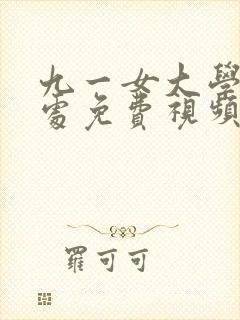 九一女大學
處免費視頻
羅可可